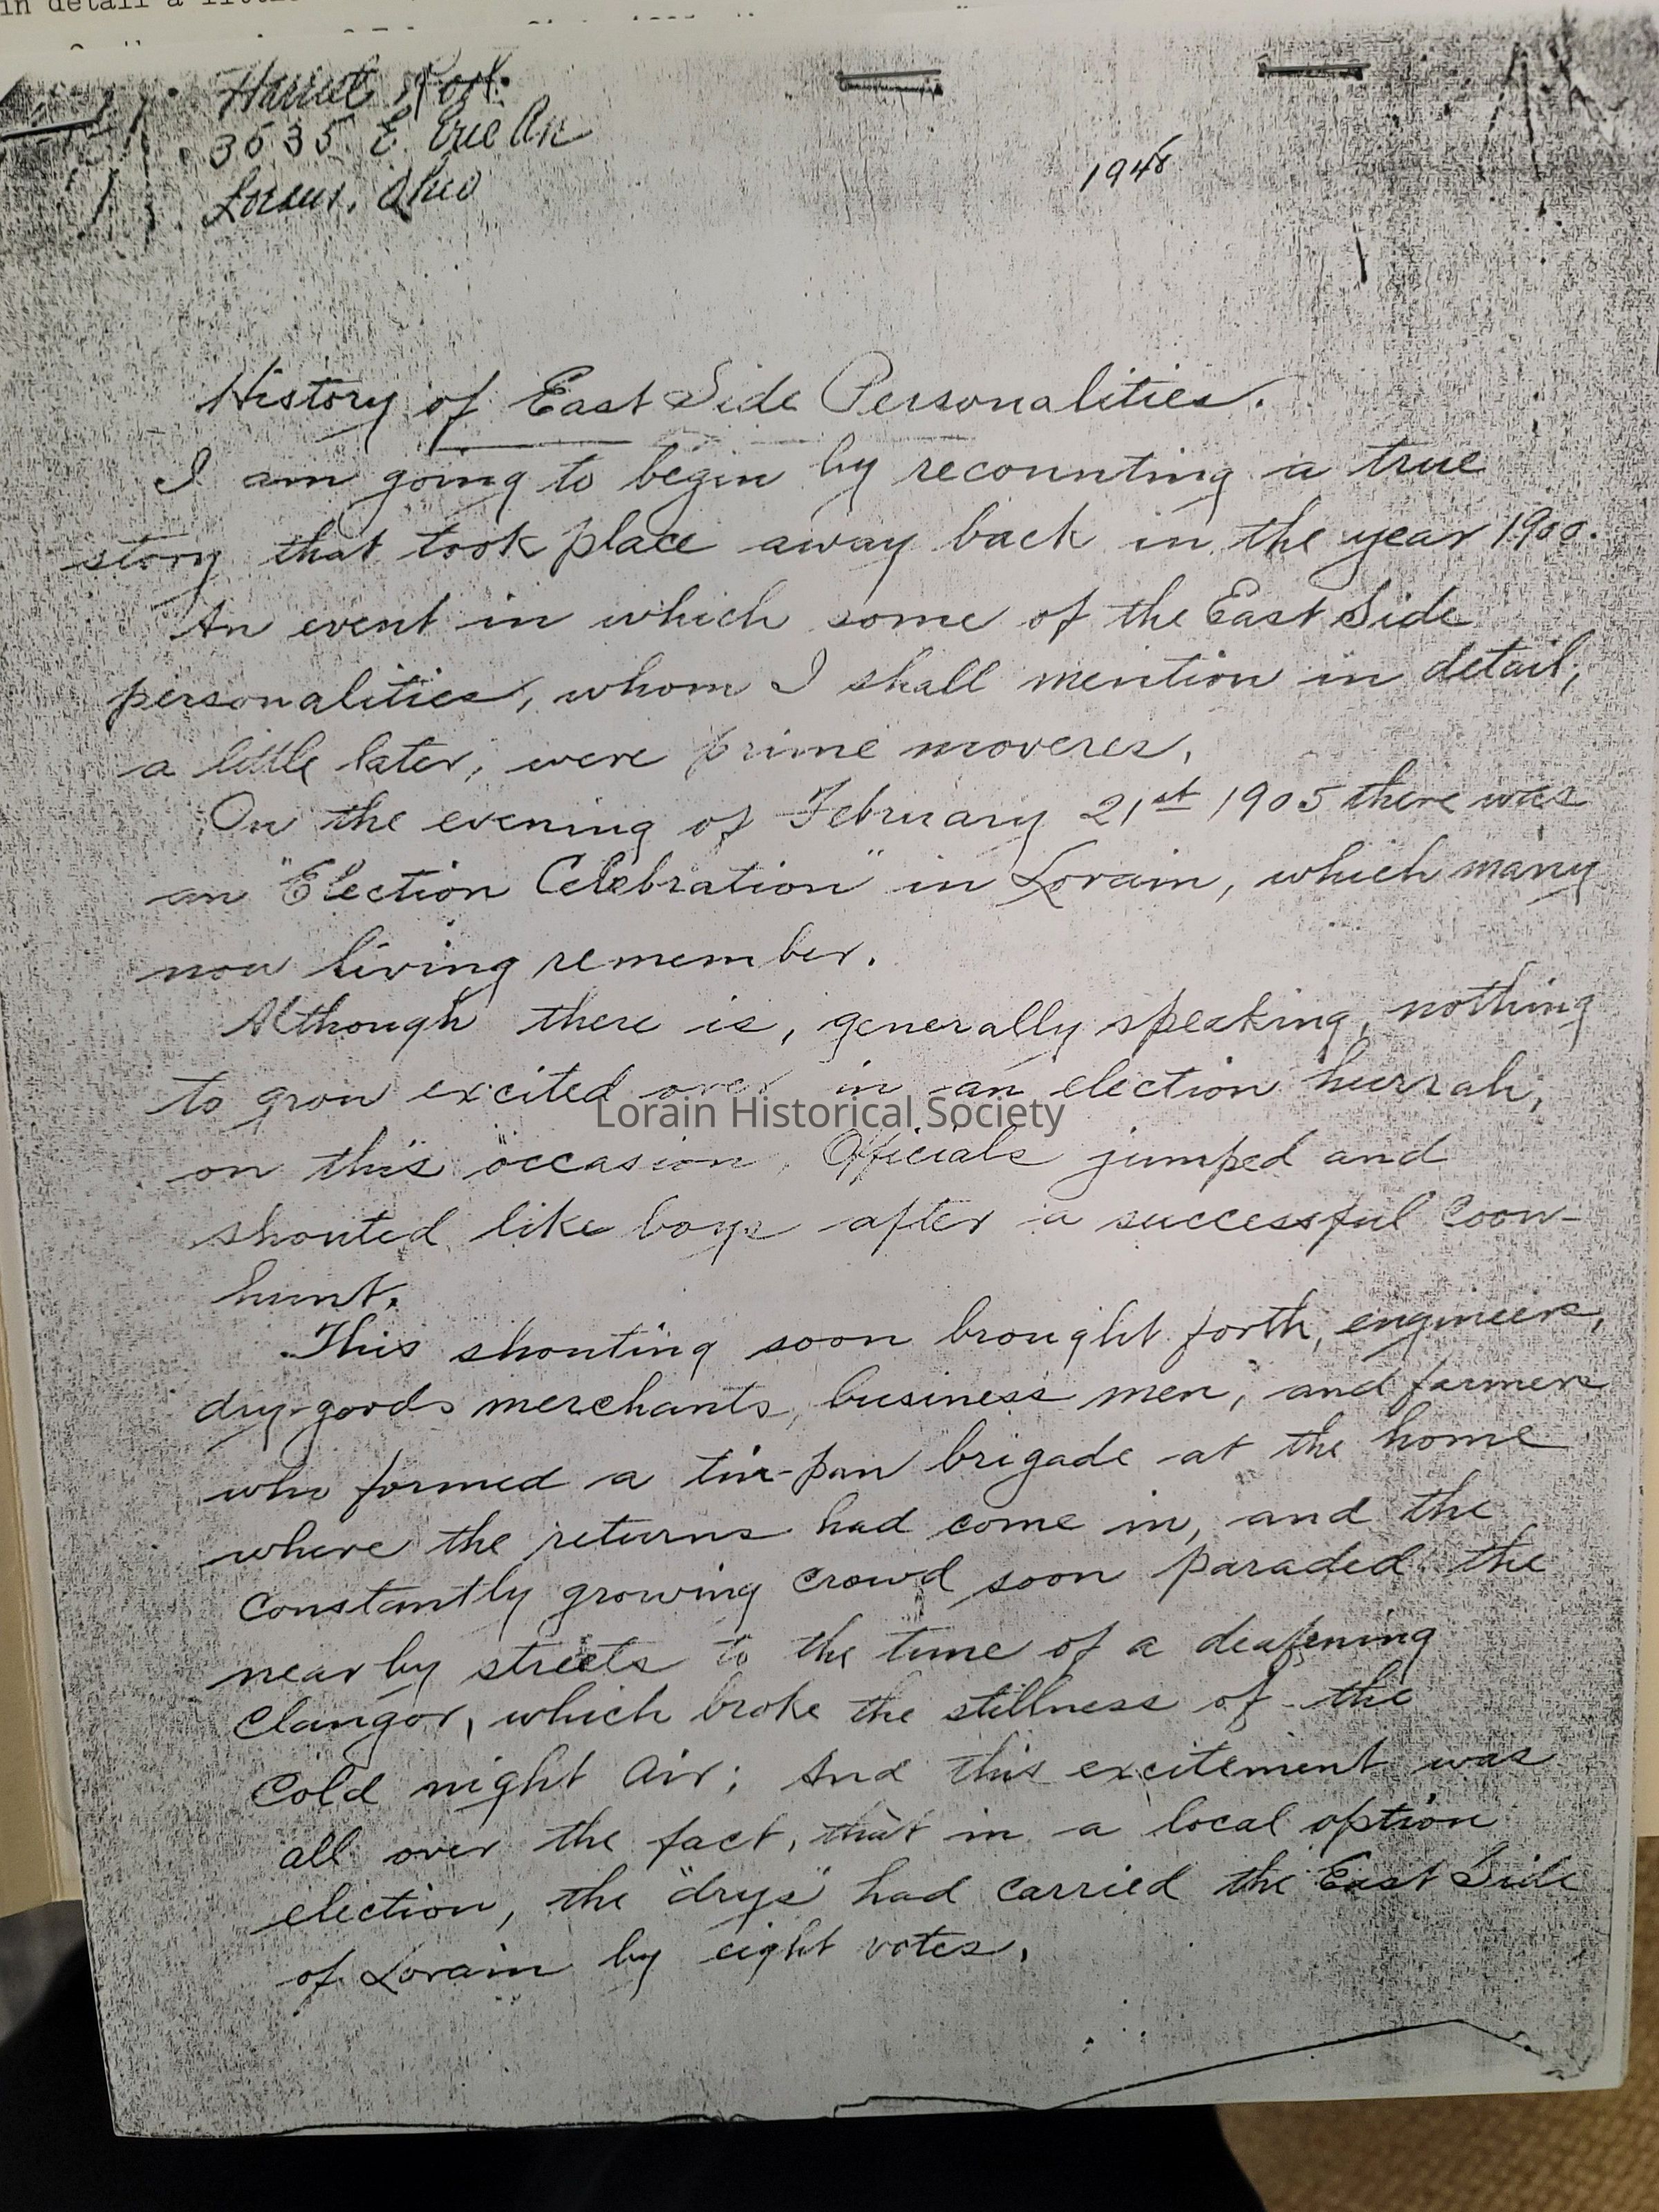 in detail a little
Harriet Root
3635 E. Erie Av
Lorain, Ohio
1948
History of East Side Personalities.
I am going to begin by recounting a true
story that took place away back in the year 1900.
An event in which some of the East Side
personalities, whom I shall mention in detail,
a little later, were prime moveres.
On the evening of February 21st 1905 there was
an "Election Celebration" in Lorain, which many
now living remember.
Although there is, generally speaking, nothing
to grow excited over in an election hurrah,
on this occasion, Officials jumped and
shouted like boys after a successful Coon-
hunt.
This shouting soon brought forth, engineers,
dry-goods merchants, business men, and farmers
who formed a tin-pan brigade at the home
where the returns had come in, and the
Constantly growing crowd soon paraded the
near by streets to the tune of a deafening
Clangor, which broke the stillness of the
Cold night Air; And this excitement was
all over the fact, that in a local option
election, the "drys" had carried the East Side
of Lorain by eight votes.
Lorain Historical Society